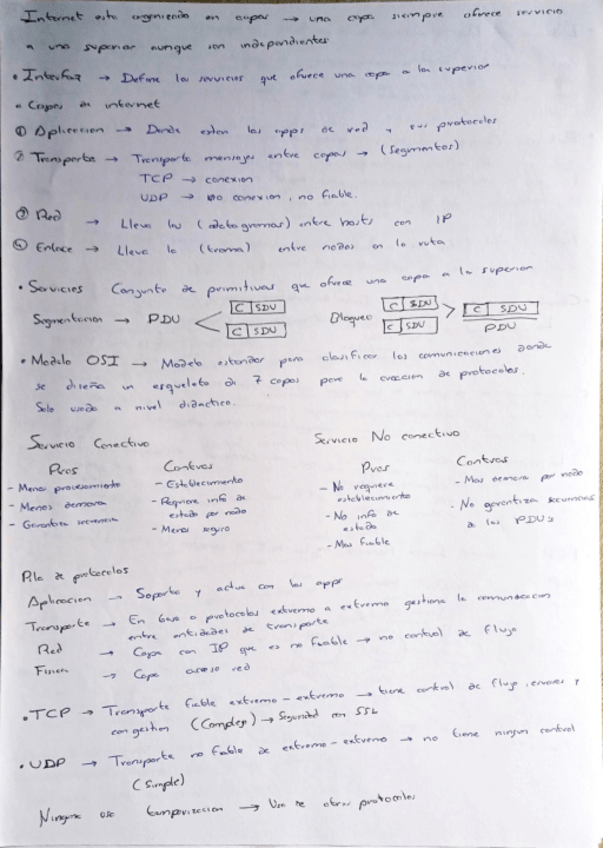 Internet esta organizado en capas → una capa siempre ofrece servicio
a una superior aunque son independientes
• Interfaz → Define los servicios que ofrece una capa a la superior
• Capas de internet
① Aplicacion → Donde estan las apps de red y sus protocolos
② Transporte → Transporta mensajes entre capas → (segmentos)
TCP → conexion
UDP → no conexion, no fiable.
③ Red → Lleva los (datagramas) entre hosts con IP
④ Enlace → Lleva la (trama) entre nodos en la ruta
• Servicios Conjunto de primitivas que ofrece una capa a la superior
Segmentacion → PDU < C SDU C SDU
Bloqueo C SDU C SDU > C SDU PDU
• Modelo OSI → Modelo estandar para clasificar las comunicaciones donde
se diseña un esqueleto de 7 capas para la creacion de protocolos.
Solo usado a nivel didactico.
Servicio Conectivo
Pros
- Menor procesamiento
- Menos demora
- Garantiza secuencia
Contras
- Establecimiento
- Requiere info de
estado por nodo
- Menos seguro
Servicio No conectivo
Pros
- No requiere
establecimiento
- No info de
estado
- Mas fiable
Contras
- Mas demora por nodo
- No garantiza secuencias
de los PDUs
Pila de protocolos
Aplicacion → Soporta y actua con las apps
Transporte → En base a protocolos extremo a extremo gestiona la comunicacion
entre entidades de transporte
Red → Capa con IP que es no fiable → no control de flujo
Fisica → Capa acceso red
• TCP → Transporte fiable extremo - extremo → tiene control de flujo, errores y
congestion (Complejo) → Seguridad con SSL
• UDP → Transporte no fiable de extremo - extremo → no tiene ningun control
(Simple)
Ninguno usa temporizacion → Uso de otros protocolos